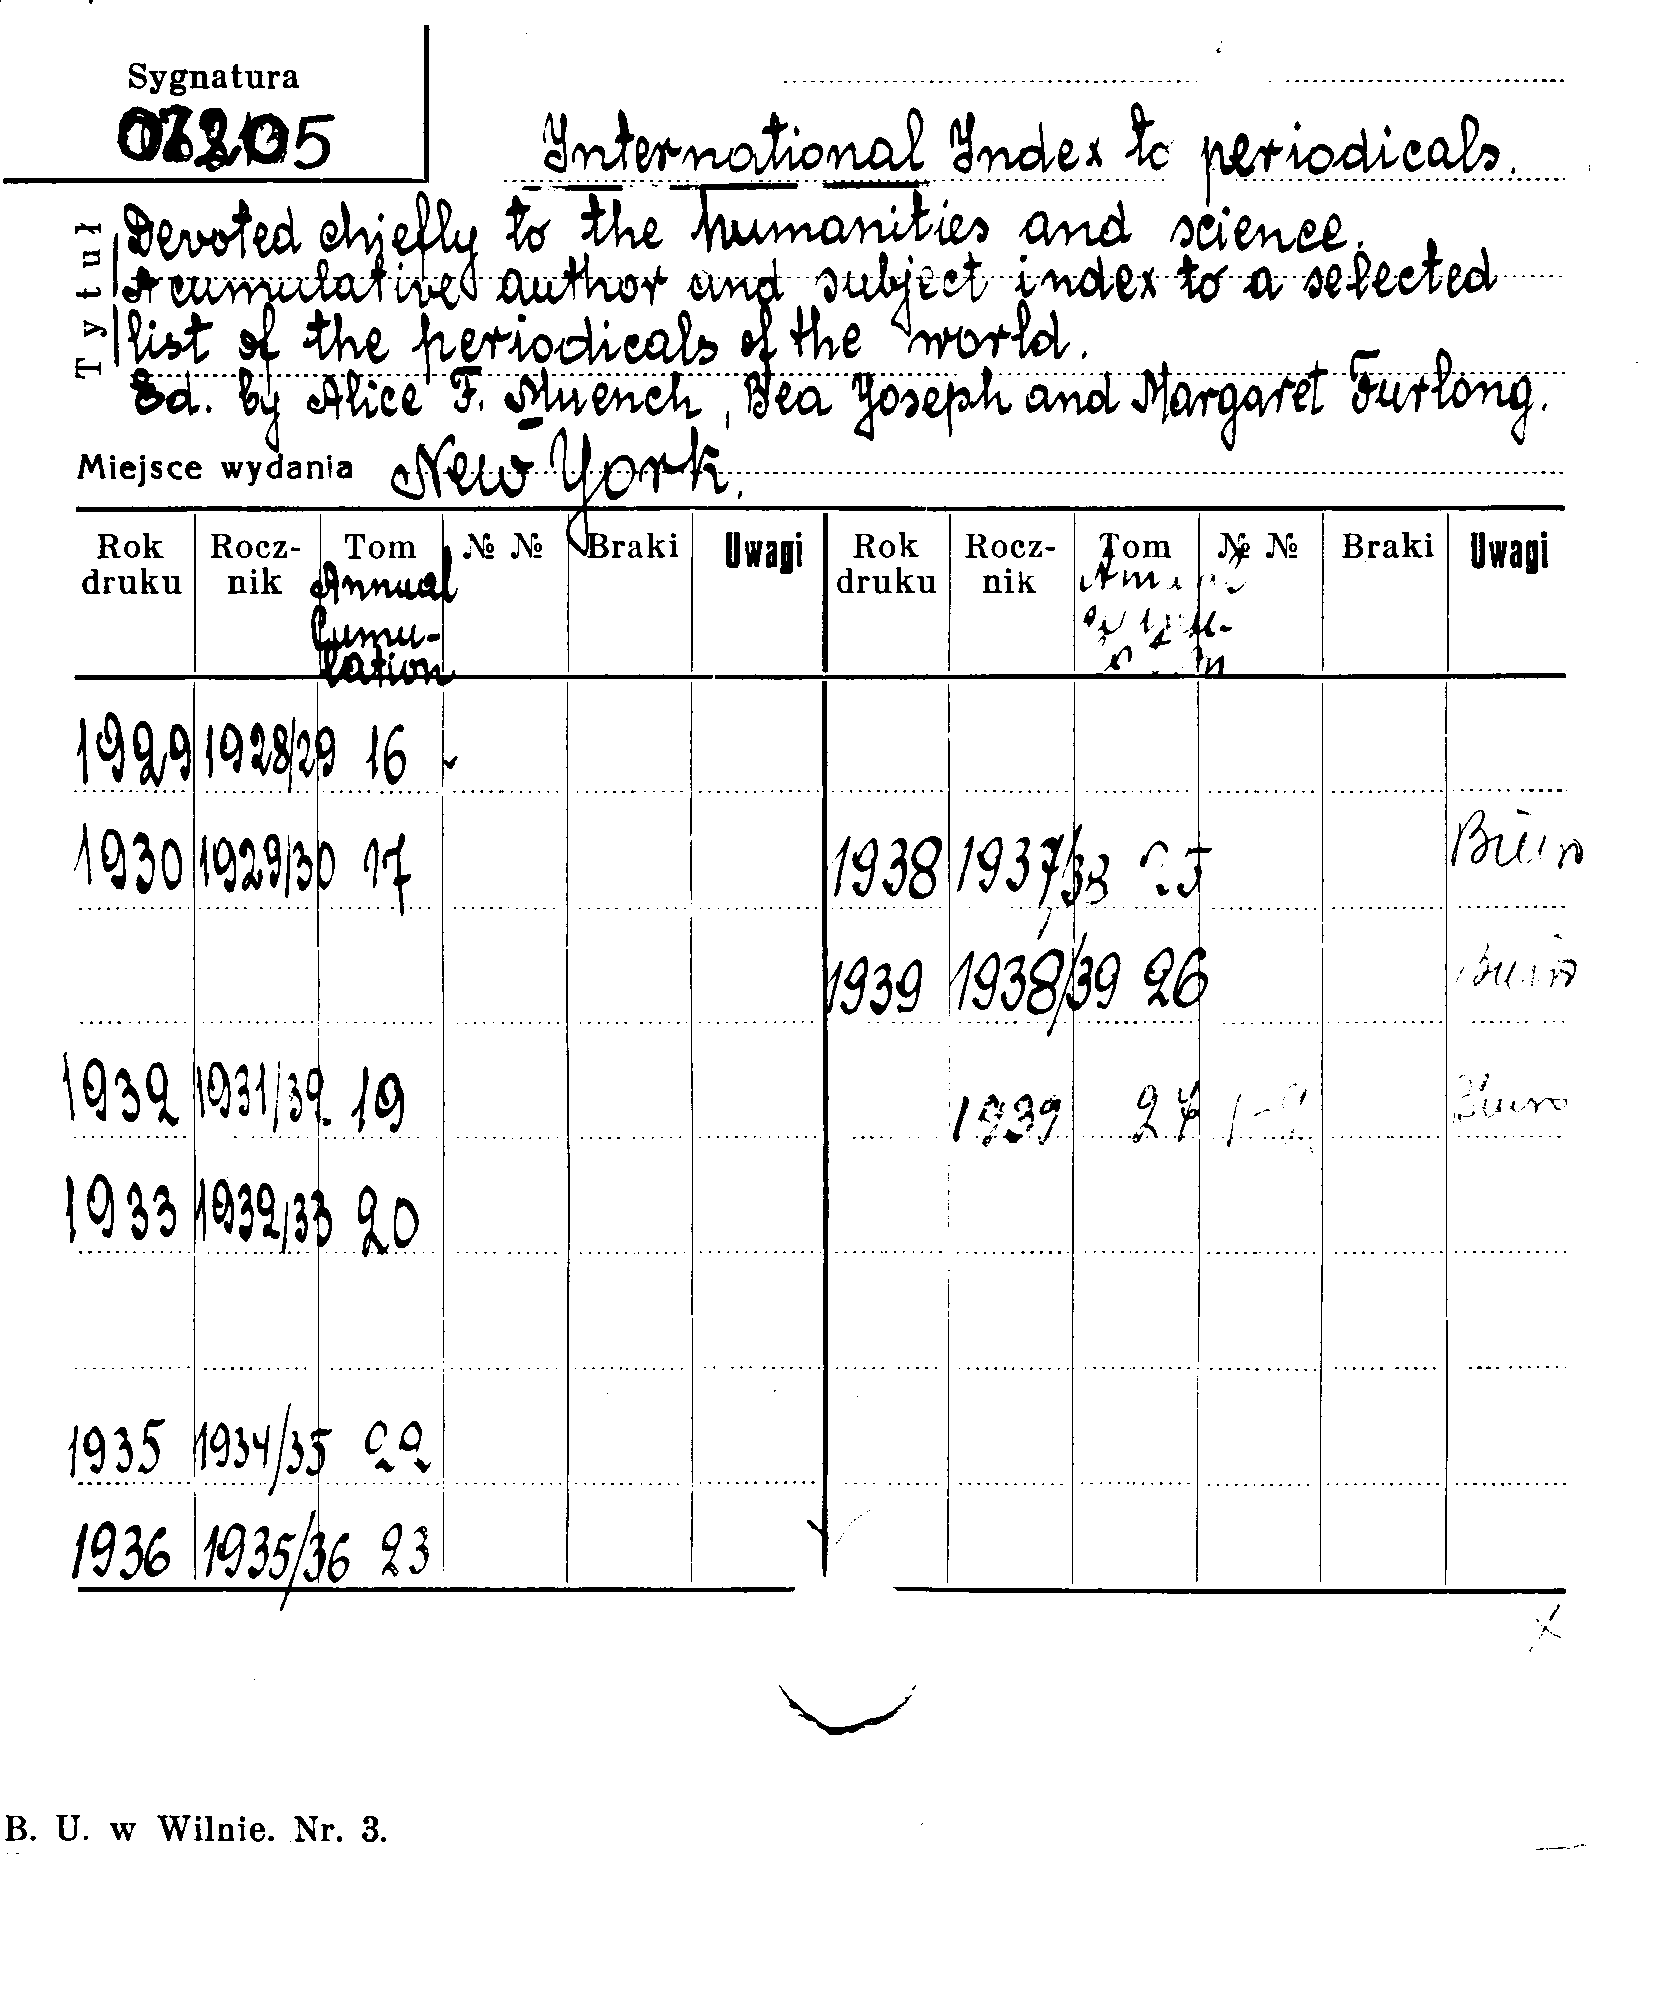 Sygnatura
International Index to periodicals.
Tytuł
Devoted chiefly to the humanities and science.
A cumulative author and subject index to a selected
list of the periodicals of the world.
Ed. by Alice F. Muench, Bea Yoseph and Margaret Furlong.
Miejsce wydania New York.
Rok druku Rocz-nik Tom №№ Braki Uwagi Rok druku Rocz-nik Tom №№ Braki Uwagi
Annual
Cumu-
lation
1929 1928/29 16
1930 1929/30 17 1938 1937/38 25 Biuro
1939 1938/39 26 Biuro
1932 1931/32 19 1939 27 1-2 Biuro
1933 1932/33 20
1935 1934/35 22
1936 1935/36 23
B. U. w Wilnie. Nr. 3.